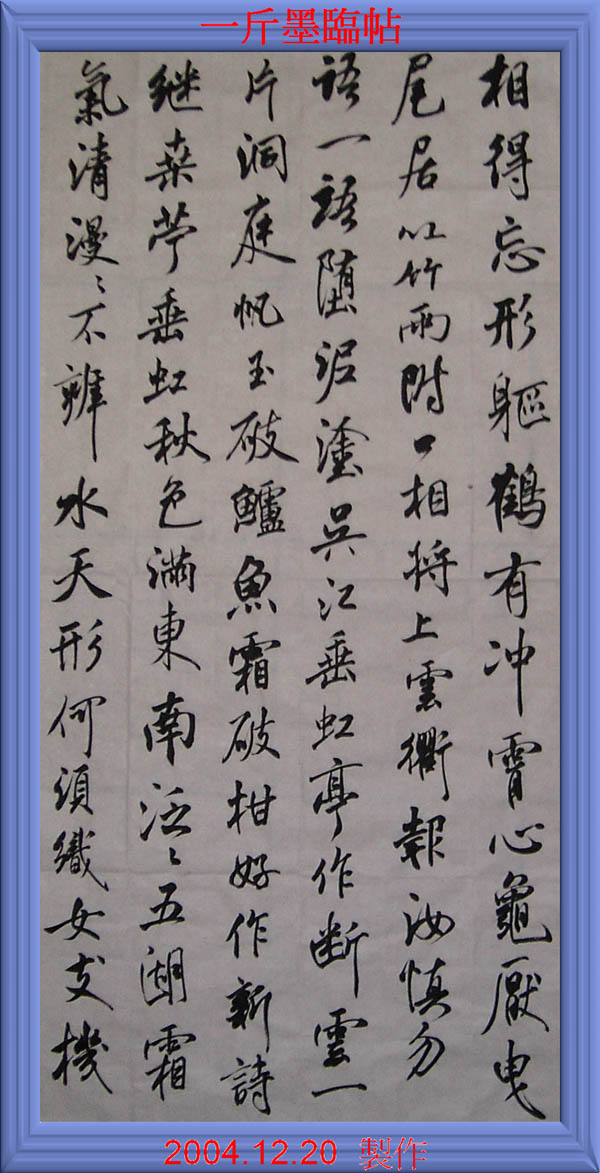 一斤墨臨帖
相得忘形軀鶴有沖霄心龜厭曳
尾居以竹兩附口相將上雲衢報汝慎勿
語一語墮泥塗吳江垂虹亭作斷雲一
片洞庭帆玉破鱸魚霜破柑好作新詩
继桑苧垂虹秋色滿東南泛〻五湖霜
氣清漫〻不辨水天形何須織女支機
2004.12.20 製作